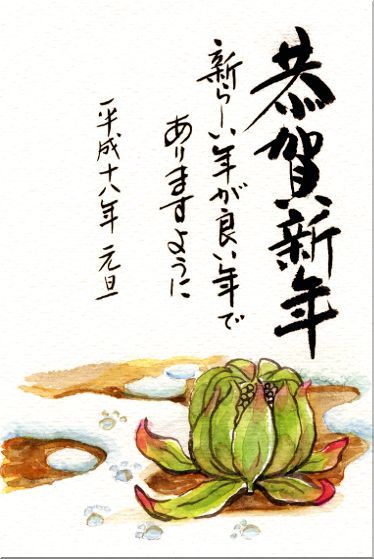 恭賀新年
新らしい年が良い年で
ありますように
平成十八年 元旦